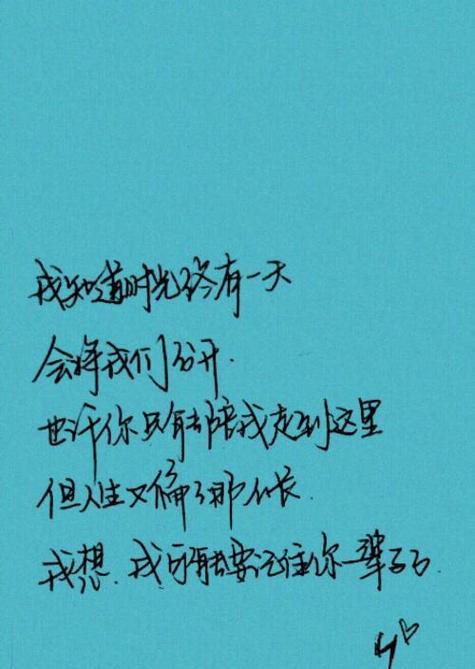 我知道时光终有一天
会将我们分开.
也许你只能陪我走到这里
但人生又偏了那么长.
我想.我可能要记住你一辈子了.